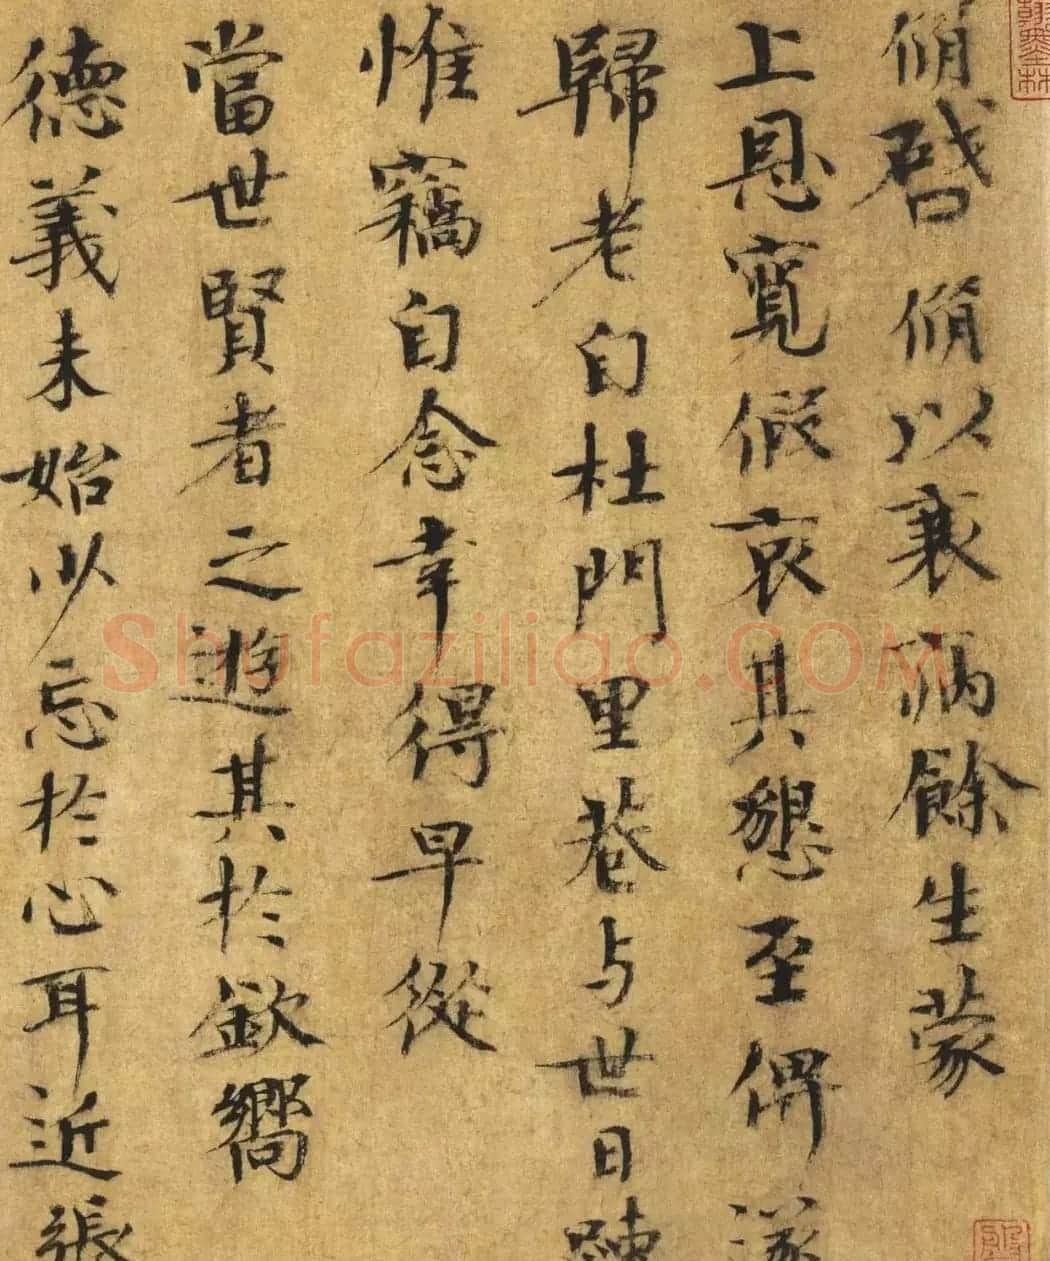 脩啓脩以衰病餘生蒙
上恩寬假哀其懇至俾遂
歸老自杜門里巷与世日踈
惟竊自念幸得早從
當世賢者之遊其於欽嚮
德義未始以忘於心耳近張
翰墨林
Shufaziliao.COM